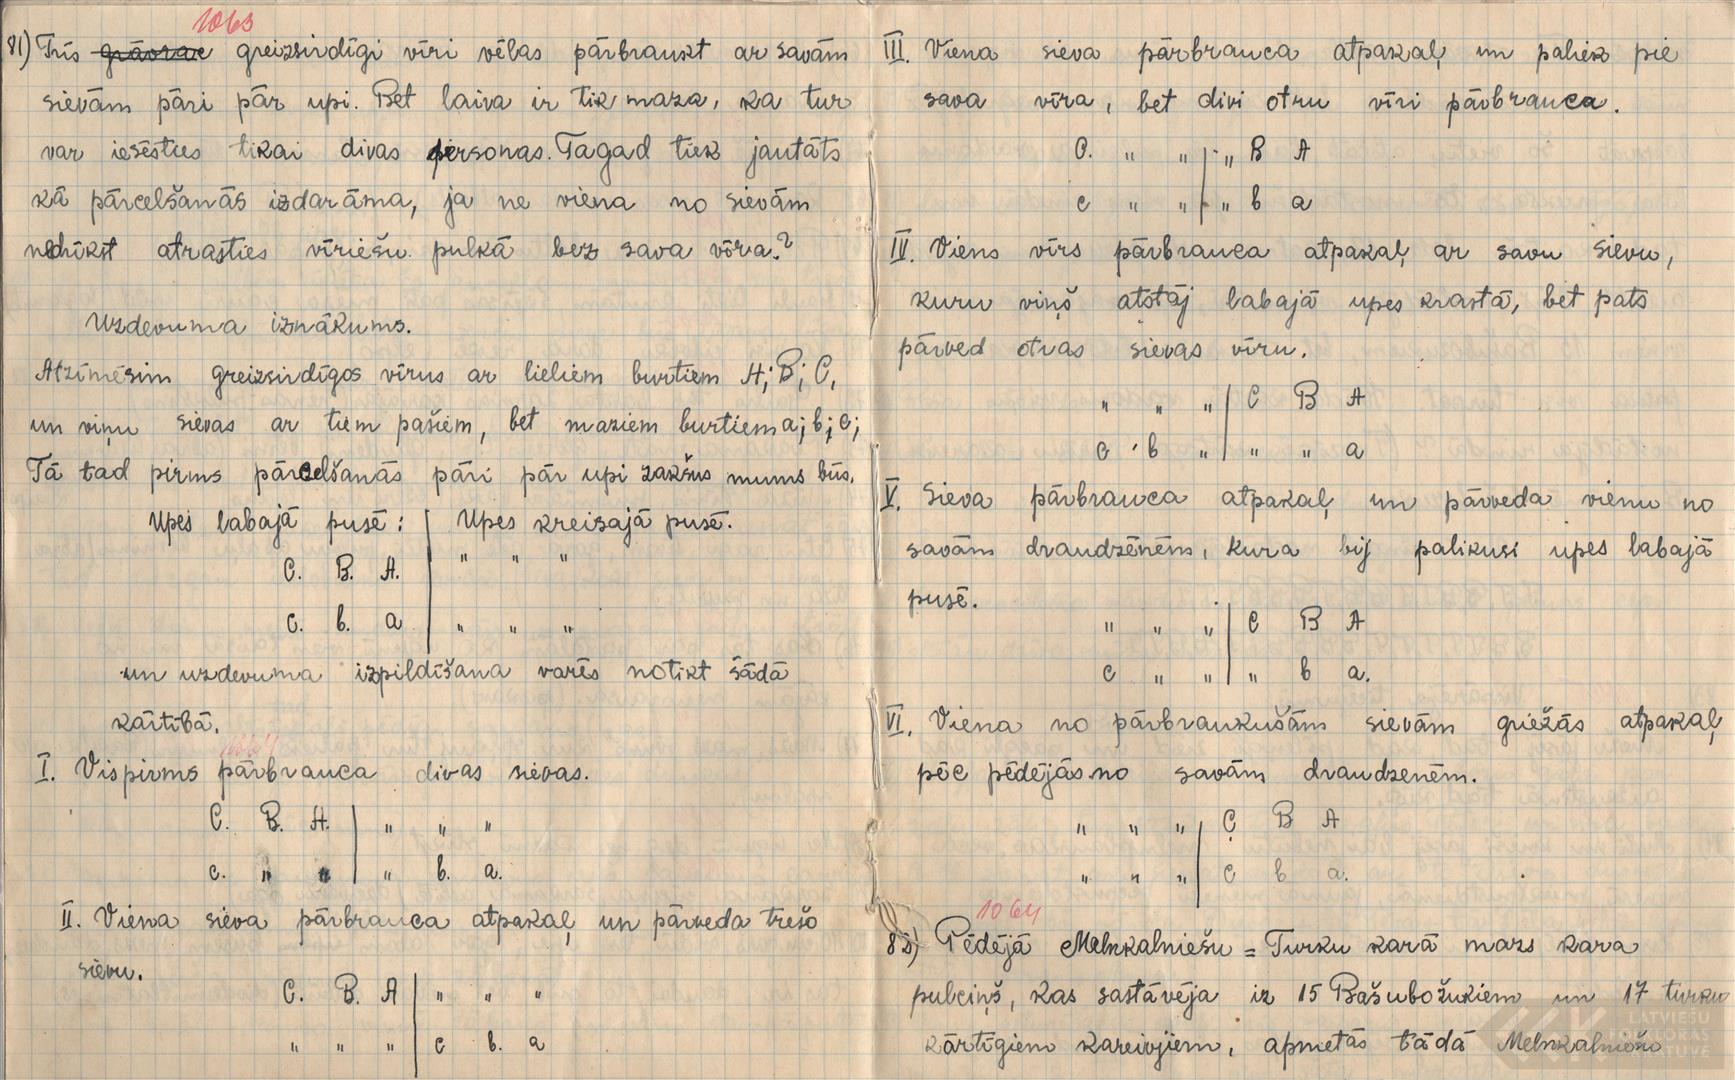 1063
81) Trīs grāvrae greizsirdīgi vīri vēlas pārbraukt ar savām
sievām pāri pār upi. Bet laiva ir tik maza, ka tur
var iesēsties tikai divas personas. Tagad tiek jautāts
kā pārcelšanās izdarāma, ja ne viena no sievām
nedrīkst atrasties vīriešu pulkā bez sava vīra?
Uzdevuma iznākums.
Atzīmēsim greizsirdīgos vīrus ar lieliem burtiem A; B; C,
un viņu sievas ar tiem pašiem, bet maziem burtiem a; b; c;
Tā tad pirms pārcelšanās pāri pār upi zakšus mums būs.
Upes labajā pusē: | Upes kreisajā pusē.
C. B. A. | " " "
c. b. a | " " "
un uzdevuma izpildīšana varēs notikt šādā
kārtībā.
I. Vispirms pārbrauca divas sievas.
C. B. A. | " " "
c. " " | " b. a.
II. Viena sieva pārbrauca atpakaļ un pārveda trešo
sievu.
C. B. A | " " "
" " " | c b. a
III. Viena sieva pārbrauca atpakaļ un paliek pie
sava vīra, bet divi otru vīri pārbrauca.
C. " " | " B A
c " " | " b a
IV. Viens vīrs pārbrauca atpakaļ ar savu sievu,
kuru viņš atstāj labajā upes krastā, bet pats
pārved otras sievas vīru.
" " " | C B A
c b " | " " a
V. Sieva pārbrauca atpakaļ un pārveda vienu no
savām draudzēnēm, kura bij palikusi upes labajā
pusē.
" " " | C B A
c " " | " b a.
VI. Viena no pārbraukušām sievām griežās atpakaļ
pēc pēdējās no savām draudzenēm.
" " " | C B A
" " " | c b a.
1064
82) Pēdējā Melnkalniešu = Turku karā mazs kara
pulciņš, kas sastāvēja iz 15 Bašubožukiem un 17 turku
kārtīgiem kareivjiem, apmetās tādā Melnkalniešo
LATVIEŠU
FOLKLORAS
KRĀTUVE